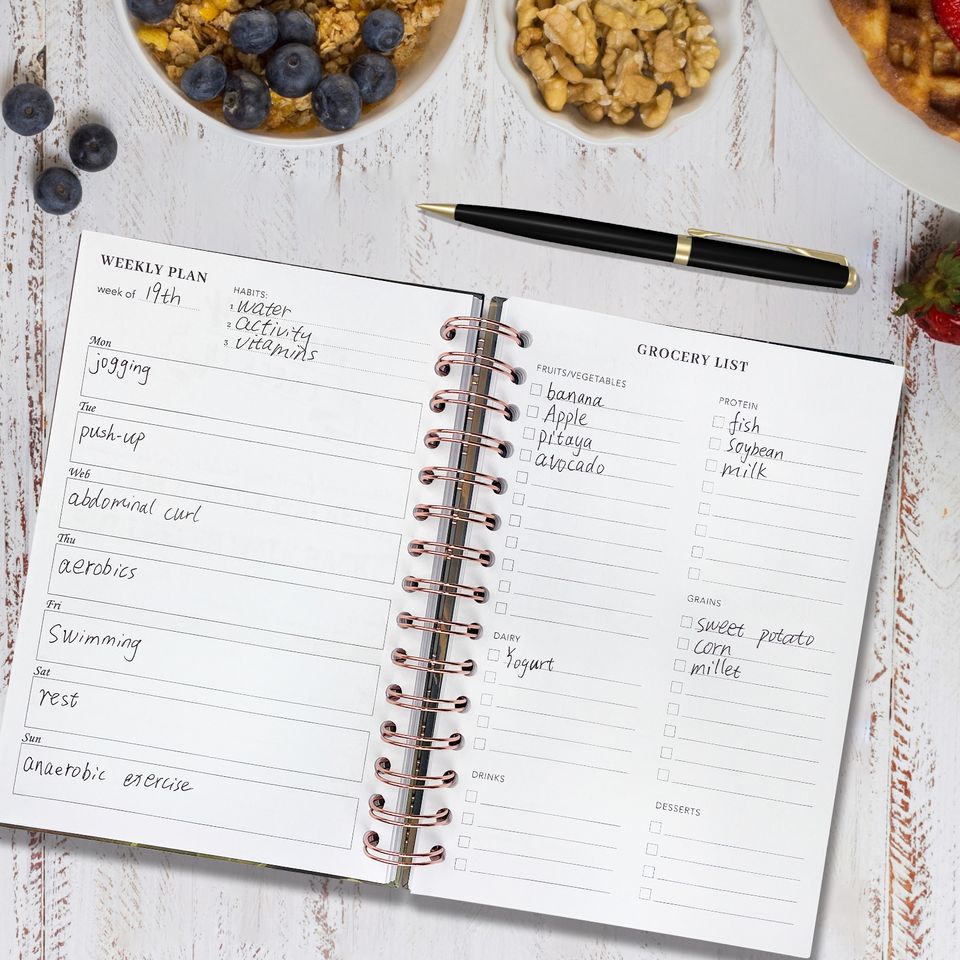 WEEKLY PLAN
week of 19th
HABITS:
1 water
2 activity
3 vitamins
Mon
jogging
Tue
push-up
Web
abdominal curl
Thu
aerobics
Fri
Swimming
Sat
rest
Sun
anaerobic exercise
GROCERY LIST
FRUITS/VEGETABLES
banana
Apple
pitaya
avocado
DAIRY
Yogurt
DRINKS
PROTEIN
fish
soybean
milk
GRAINS
sweet potato
corn
millet
DESSERTS